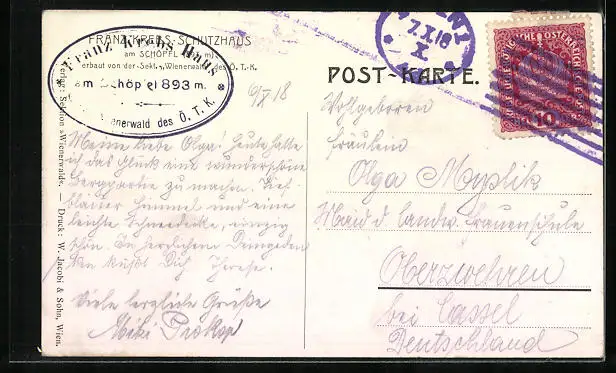 FRANZ KREBS-SCHUTZHAUS
am SCHÖPFL (893 m)
erbaut von der Sekt. „Wienerwald" des Ö. T.-K.
* Franz Krebs Haus *
am Schöpfel 893 m.
Wienerwald des Ö. T. K.
7.X.18
X
POST-KARTE.
10
6/X 18
Meine liebe Olga! Heute hatte
ich das Glück eine wunderschöne
Bergpartie zu machen. Tief
blauer Himmel und eine
leichte Schneedecke, einzig
schön. In herzlichem Gedenken
küsst Dich Therese.
Viele herzliche Grüße
Mizi Prokop
Wohlgeboren
Fräulein
Olga Myslik
Maid d. landw. Frauenschule
Oberzwehren
bei Cassel
Deutschland
Verlag: Sektion »Wienerwald«. — Druck: W. Jacobi & Sohn, Wien.